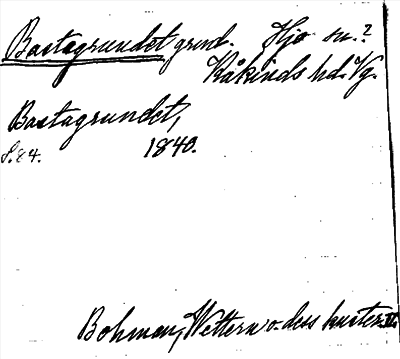 Bastagrundet grund. Hjo sn.?
Kåkinds hd. Vg.
Bastagrundet,
S. 84. 1840.
Bohman, Wettern o. dess kuster.